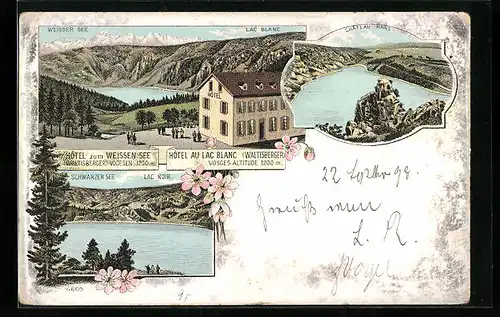 WEISSER SEE
LAC BLANC
CHÂTEAU HANS
HÔTEL
HÔTEL zum WEISSEN SEE
(WALTISBERGER) VOGESEN 1200 m.
HÔTEL AU LAC BLANC (WALTISBERGER)
VOSGES ALTITUDE 1200 m.
SCHWARZER SEE
LAC NOIR
22 98
L. R.
Vogel